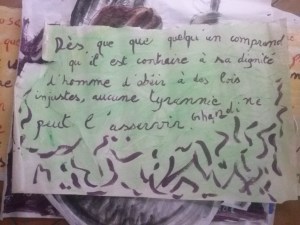 Dès que que quelqu'un comprend
qu'il est contraire à sa dignité
d'homme d'obéir à des lois
injustes, aucune tyrannie ne
peut l'asservir.